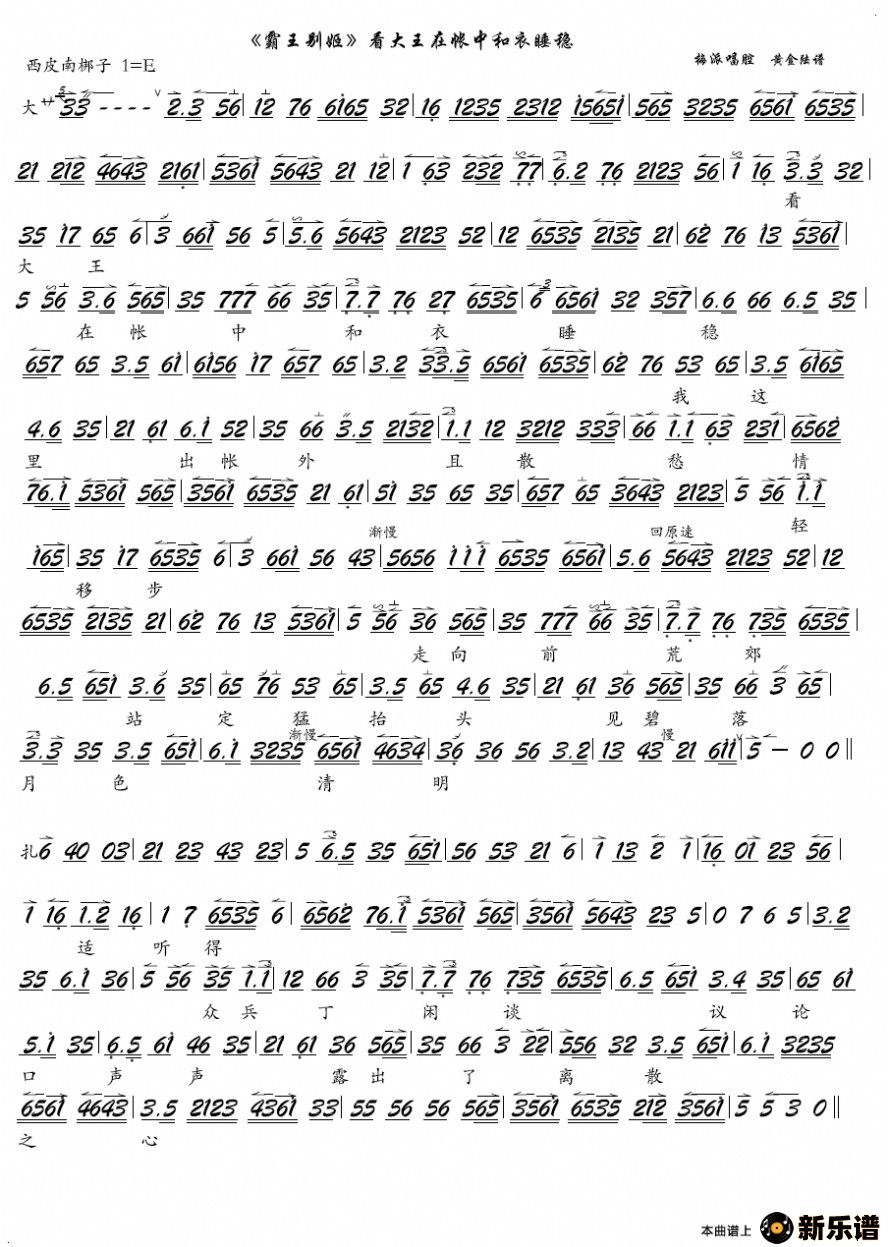 《霸王别姬》看大王在帐中和衣睡稳
西皮南梆子 1=E
梅派唱腔 黄金陆谱
大 サ 33 - - - - ∨ 2.3 56 | 12 76 6165 32 | 16 1235 2312 15651 | 565 3235 6561 6535 |
21 212 4643 2161 | 5361 5643 21 12 | 1 63 232 77 | 6.2 76 2123 56 | 1 16 3.3 32 |
看
35 17 65 6 | 3 661 56 5 | 5.6 5643 2123 52 | 12 6535 2135 21 | 62 76 13 5361 |
大 王
5 56 3.6 565 | 35 777 66 35 | 7.7 76 27 6535 | 6 6561 32 357 | 6.6 66 6.5 35 |
在 帐 中 和 衣 睡 稳
657 65 3.5 61 | 6156 17 657 65 | 3.2 33.5 6561 6535 | 62 76 53 65 | 3.5 6165
我 这
4.6 35 | 21 61 6.1 52 | 35 66 3.5 2132 | 1.1 12 3212 333 | 66 1.1 63 231 | 6562
里 出 帐 外 且 散 愁 情
76.1 5361 565 | 3561 6535 21 61 | 51 35 65 35 | 657 65 3643 2123 | 5 56 1.1
渐慢 回原速 轻
165 | 35 17 6535 6 | 3 661 56 43 | 5656 111 6535 6561 | 5.6 5643 2123 52 | 12
移 步
6535 2135 21 | 62 76 13 5361 | 5 56 36 565 | 35 777 66 35 | 7.7 76 735 6535 |
走 向 前 荒 郊
6.5 651 3.6 35 | 65 76 53 65 | 3.5 65 4.6 35 | 21 61 36 565 | 35 66 3 65 |
站 定 猛 抬 头 见 碧 落
渐慢 慢
3.3 35 3.5 651 | 6.1 3235 6561 4634 | 36 36 56 3.2 | 13 43 21 611 | 5 - 0 0 ‖
月 色 清 明
扎 6 40 03 | 21 23 43 23 | 5 6.5 35 651 | 56 53 21 6 | 1 13 2 1 | 16 01 23 56 |
1 16 1.2 16 | 1 7 6535 6 | 6562 76.1 5361 565 | 3561 5643 23 5 | 0 7 6 5 | 3.2
适 听 得
35 6.1 36 | 5 56 35 1.1 | 12 66 3 35 | 7.7 76 735 6535 | 6.5 651 3.4 35 | 65 61
众 兵 丁 闲 谈 议 论
5.1 35 | 6.5 61 46 35 | 21 61 36 565 | 35 66 3 22 | 556 32 3.5 651 | 6.1 3235
口 声 声 露 出 了 离 散
6561 4643 | 3.5 2123 4361 33 | 55 56 56 565 | 3561 6535 212 3561 | 5 5 3 0 ‖
之 心
本曲谱上 新乐谱